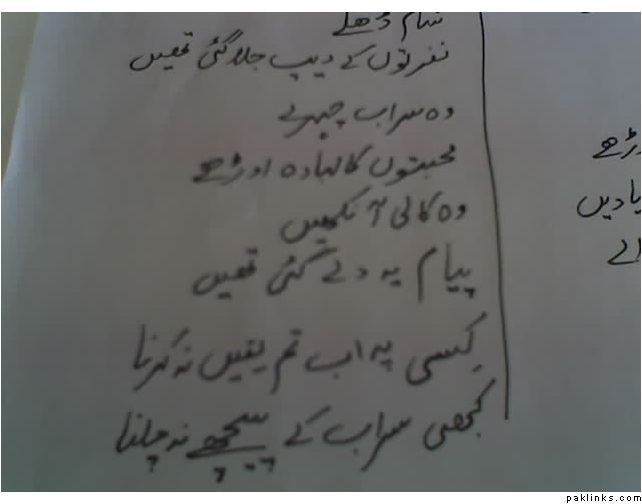 شام ڈھلے
نفرتوں کے دیپ جلا گئی تھیں
وہ سراب چہرے
محبتوں کا لبادہ اوڑھے
وہ کالی آنکھیں
پیام یہ دے گئی تھیں
کسی پہ اب تم یقیں نہ کرنا
کبھی سراب کے پیچھے نہ چلنا
یادیں
paklinks.com